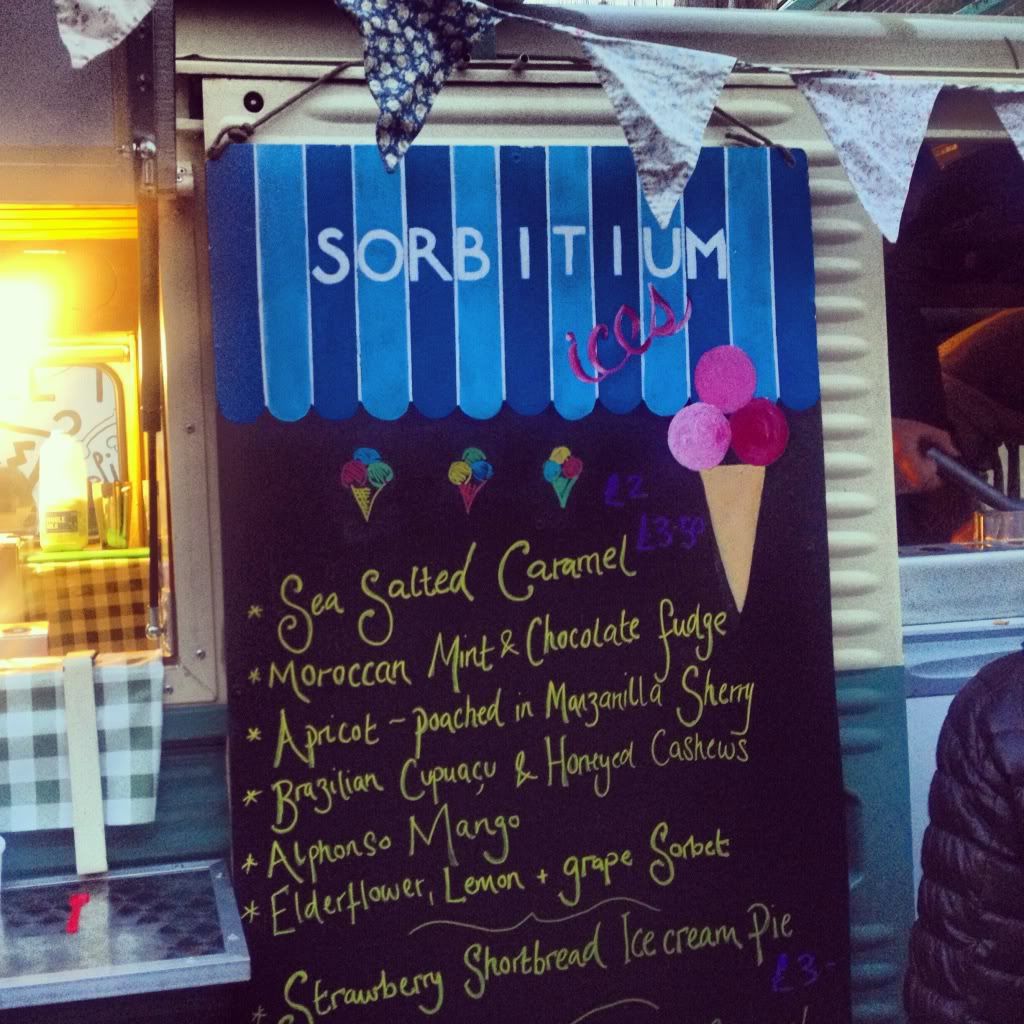 SORBITIUM
ices
£2
£3.50
* Sea Salted Caramel
* Moroccan Mint & Chocolate fudge
* Apricot - poached in Manzanilla Sherry
* Brazilian Cupuaçu & Honeyed Cashews
* Alphonso Mango
* Elderflower, Lemon + grape Sorbet
* Strawberry Shortbread Ice cream Pie
£3-